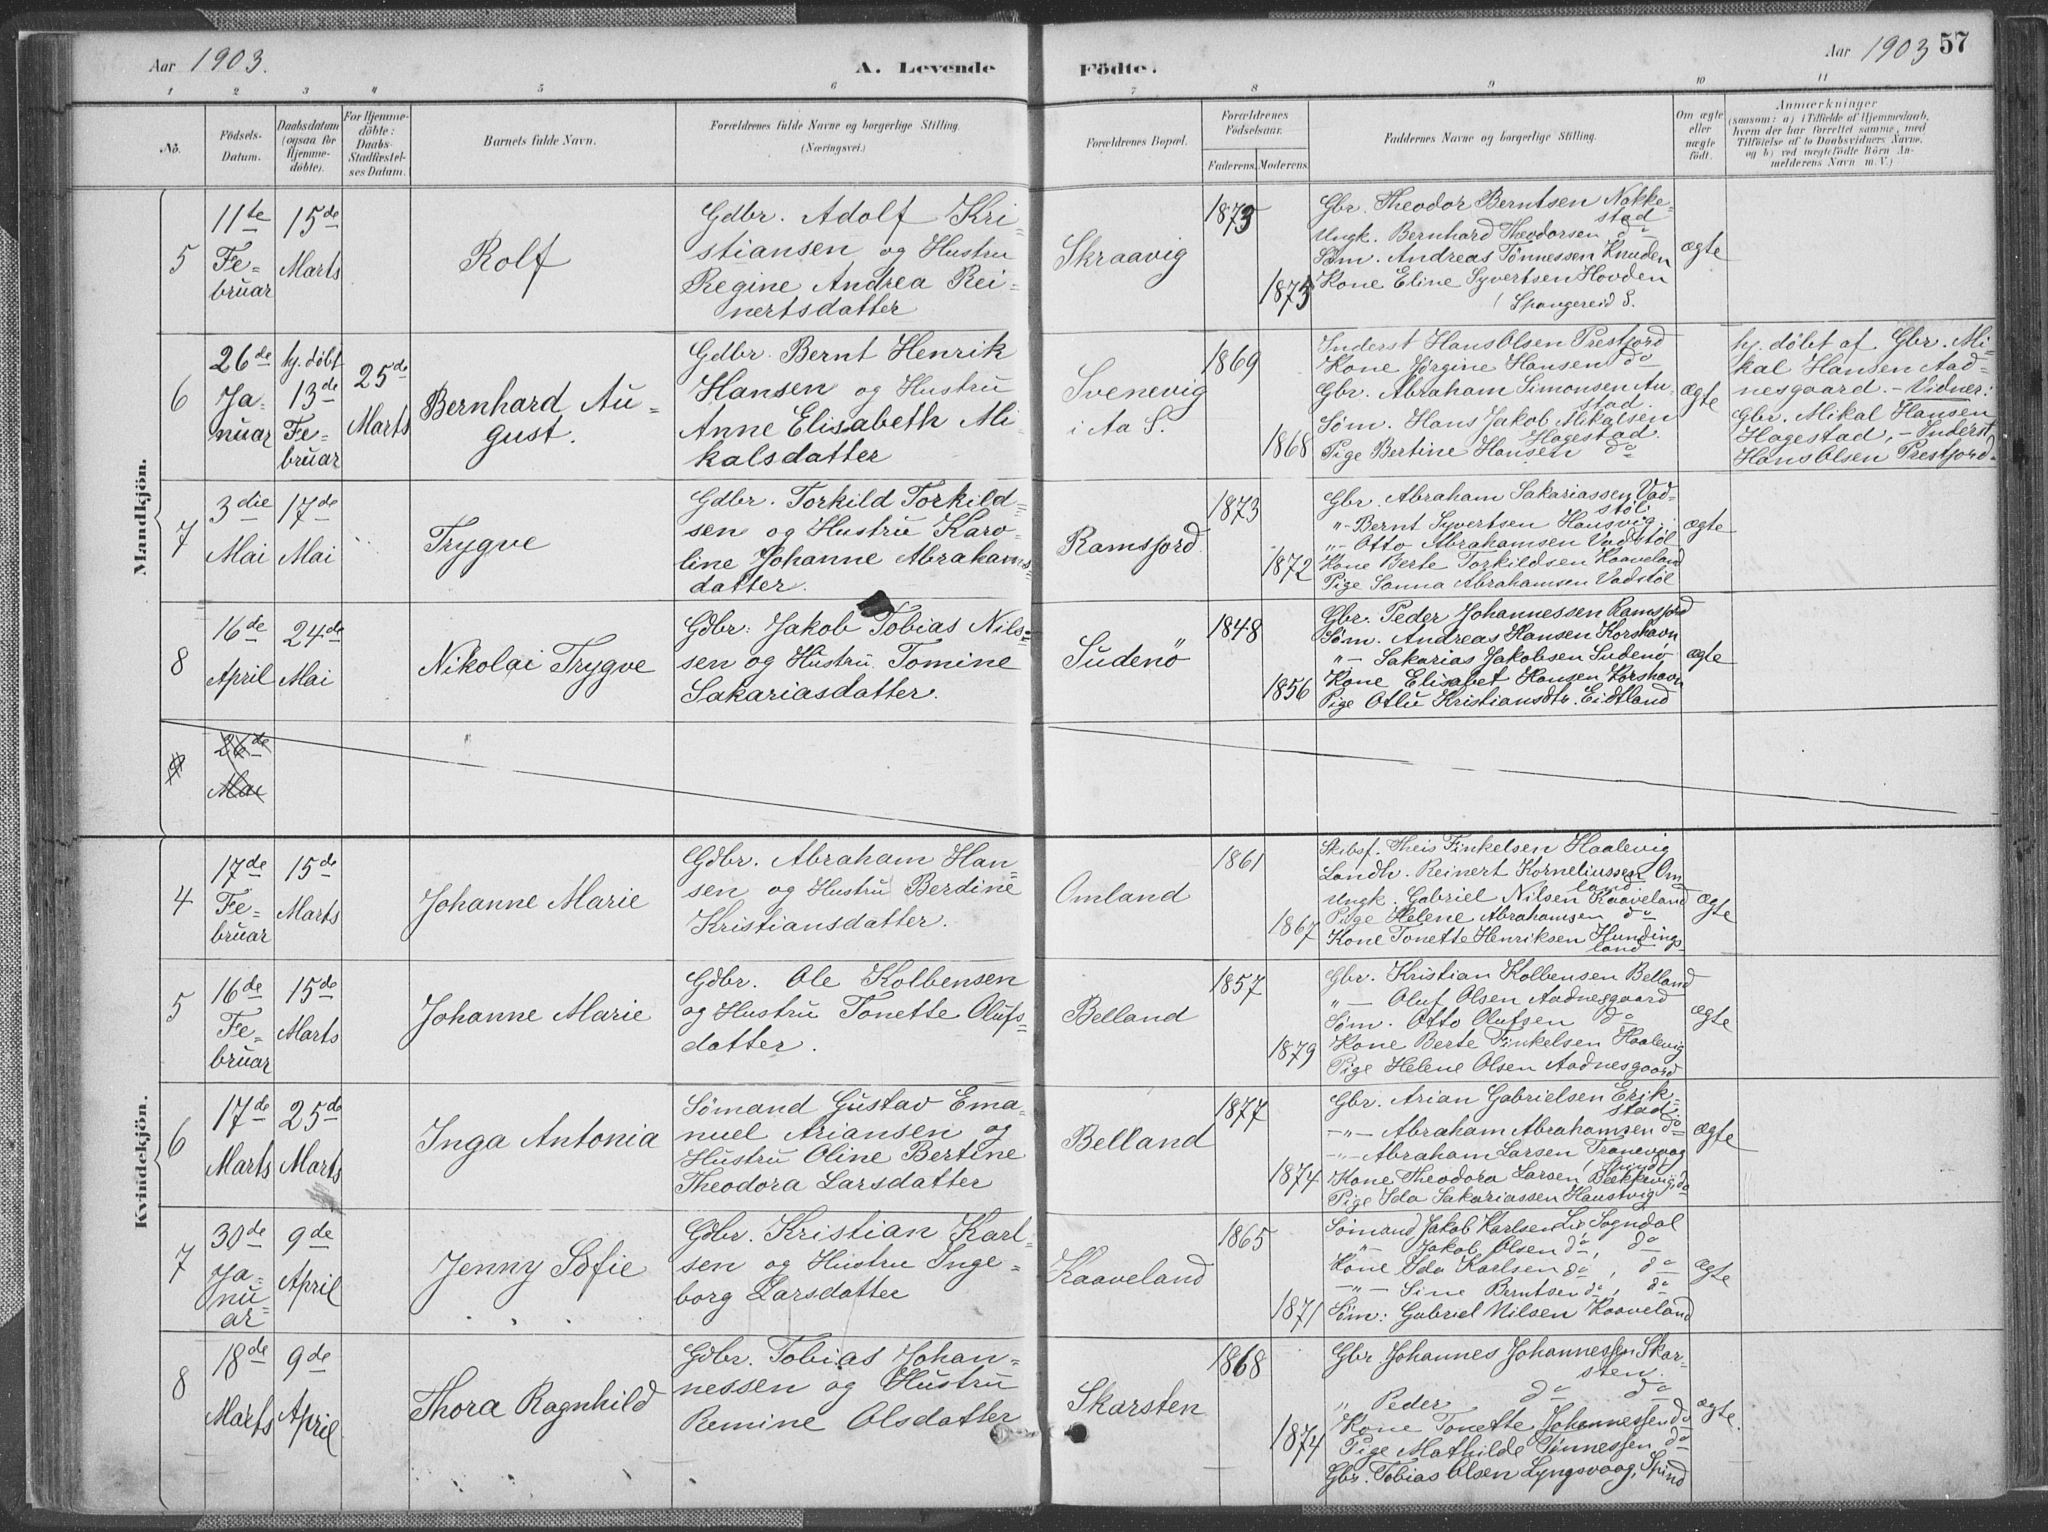 Aar 1903.
A. Levende Födte.
Aar 1903 57
1 2 3 4 5 6 7 8 9 10 11
No.
Födsels-Datum.
Daabsdatum (ogsaa for Hjemmedöbte).
For Hjemmedöbte: Daabs-Stadfæstelses Datum.
Barnets fulde Navn.
Forældrenes fulde Navne og borgerlige Stilling. (Næringsvei.)
Forældrenes Bopæl.
Forældrenes Födselsaar.
Faderens. Moderens.
Faddernes Navne og borgerlige Stilling.
Om ægte eller uægte födt.
Anmærkninger
(saasom: a) i Tilfælde af Hjemmedaab,
hvem der har forrettet samme, med
Tilföielse af to Daabsvidners Navne,
og b) ved uægtefödte Börn Anmelderens Navn m. V.)
Mandkjön.
5
11te Februar
15de Marts
Rolf
Gdbr. Adolf Kri=
stiansen og Hustru
Regine Andrea Rei=
nertsdatter
Skraavig
1873
1875
Gbr. Theodor Berntsen Nokke=
stad
Ungk. Bernhard Theodorsen do
Söm. Andreas Tönnessen Knuden
Kone Eline Syvertsen Hovden
/ Spangereid S.
ægte
6
26de Januar
hj. döbt 13de Februar
25de Marts
Bernhard Au=
gust.
Gdbr. Bernt Henrik
Hansen og Hustru
Anne Elisabeth Mi
kalsdatter
Svenevig
i Aa S.
1869
1868
Inderst Hans Olsen Prestfjord
Kone Jörgine Hansen do
Gbr. Abraham Simonsen Au=
stad.
Söm. Hans Jakob Mikalsen
Hagestad.
Pige Bertine Hansen do
ægte
hj. döbt af Gbr. Mi=
kal Hansen Aad=
nesgaard. - Vidner:
Gbr. Mikal Hansen
Hagestad, - Inderst
Hans Olsen Prestfjord.
7
3die Mai
17de Mai
Trygve
Gdbr. Torkild Torkild=
sen og Hustru Karo=
line Johanne Abrahams=
datter.
Ramsfjord
1873
1872
Gbr. Abraham Sakariassen Vad=
stöl
"- Bernt Syvertsen Hausvig
"- Otto Abrahamsen Vadstöl
Kone Berte Torkildsen Kaaveland
Pige Sanna Abrahamsen Vadstöl
ægte
8
16de April
24de Mai
Nikolai Trygve
Gdbr: Jakob Tobias Nils=
sen og Hustru Tomine
Sakariasdatter.
Sudenö
1848
1856
Gbr. Peder Johannessen Ramsfjord
Söm. Andreas Hansen Korshavn
"- Sakarias Jakobsen Sudenö
Kone Elisabet Hansen Korshavn
Pige Otlie Kristiansdtr. Eidtland
ægte
26de Mai
Kvindekjön.
4
17de Februar
15de Marts
Johanne Marie
Gdbr. Abraham Han=
sen og Hustru Berdine
Kristiansdatter.
Omland
1861
1867
Skibsf. Theis Finkelsen Haalevig
Landh. Reinert Korneliussen Om
land.
Ungk. Gabriel Nilsen Kaaveland
Pige Helene Abrahamsen do
Kone Tonette Henriksen Hundings
land
ægte
5
16de Februar
15de Marts
Johanne Marie
Gdbr. Ole Kolbensen
og Hustru Tonette Olufs=
datter.
Belland
1857
1879
Gbr. Kristian Kolbensen Belland
"- Oluf Olsen Aadnesgaard
Söm. Otto Olufsen do
Kone Berte Finkelsen Haalevig
Pige Helene Olsen Aadnesgaard
ægte
6
17de Marts
25de Marts
Inga Antonia
Sömand Gustav Ema=
nuel Ariansen og
Hustru Oline Bertine
Theodora Larsdatter
Belland
1877
1874
Gbr. Arian Gabrielsen Erik=
stad.
-"- Abraham Abrahamsen do
-"- Abraham Larsen Tranevaag
/ Spind
Kone Theodora Larsen Bækkevig do
Pige Ida Sakariassen Haustvig
ægte
7
30de Januar
9de April
Jenny Sofie
Gdbr. Kristian Karl=
sen og Hustru Inge=
borg Larsdatter
Kaaveland
1865
1871
Sömand Jakob Karlsen Li, Sogndal
"- Jakob Olsen do, do
Kone Ida Karlsen do, do
-"- Sine Berntsen do, do
Söm: Gabriel Nilsen Kaaveland
ægte
8
18de Marts
9de April
Thora Ragnhild
Gdbr. Tobias Johan=
nessen og Hustru
Remine Olsdatter
Skarsten
1868
1874
Gbr Johannes Johannessen Skar=
sten.
" Peder do do
Kone Tonette Johannessen do
Pige Mathilde Tönnessen do
Gbr. Tobias Olsen Lyngsvaag, Spind
ægte.